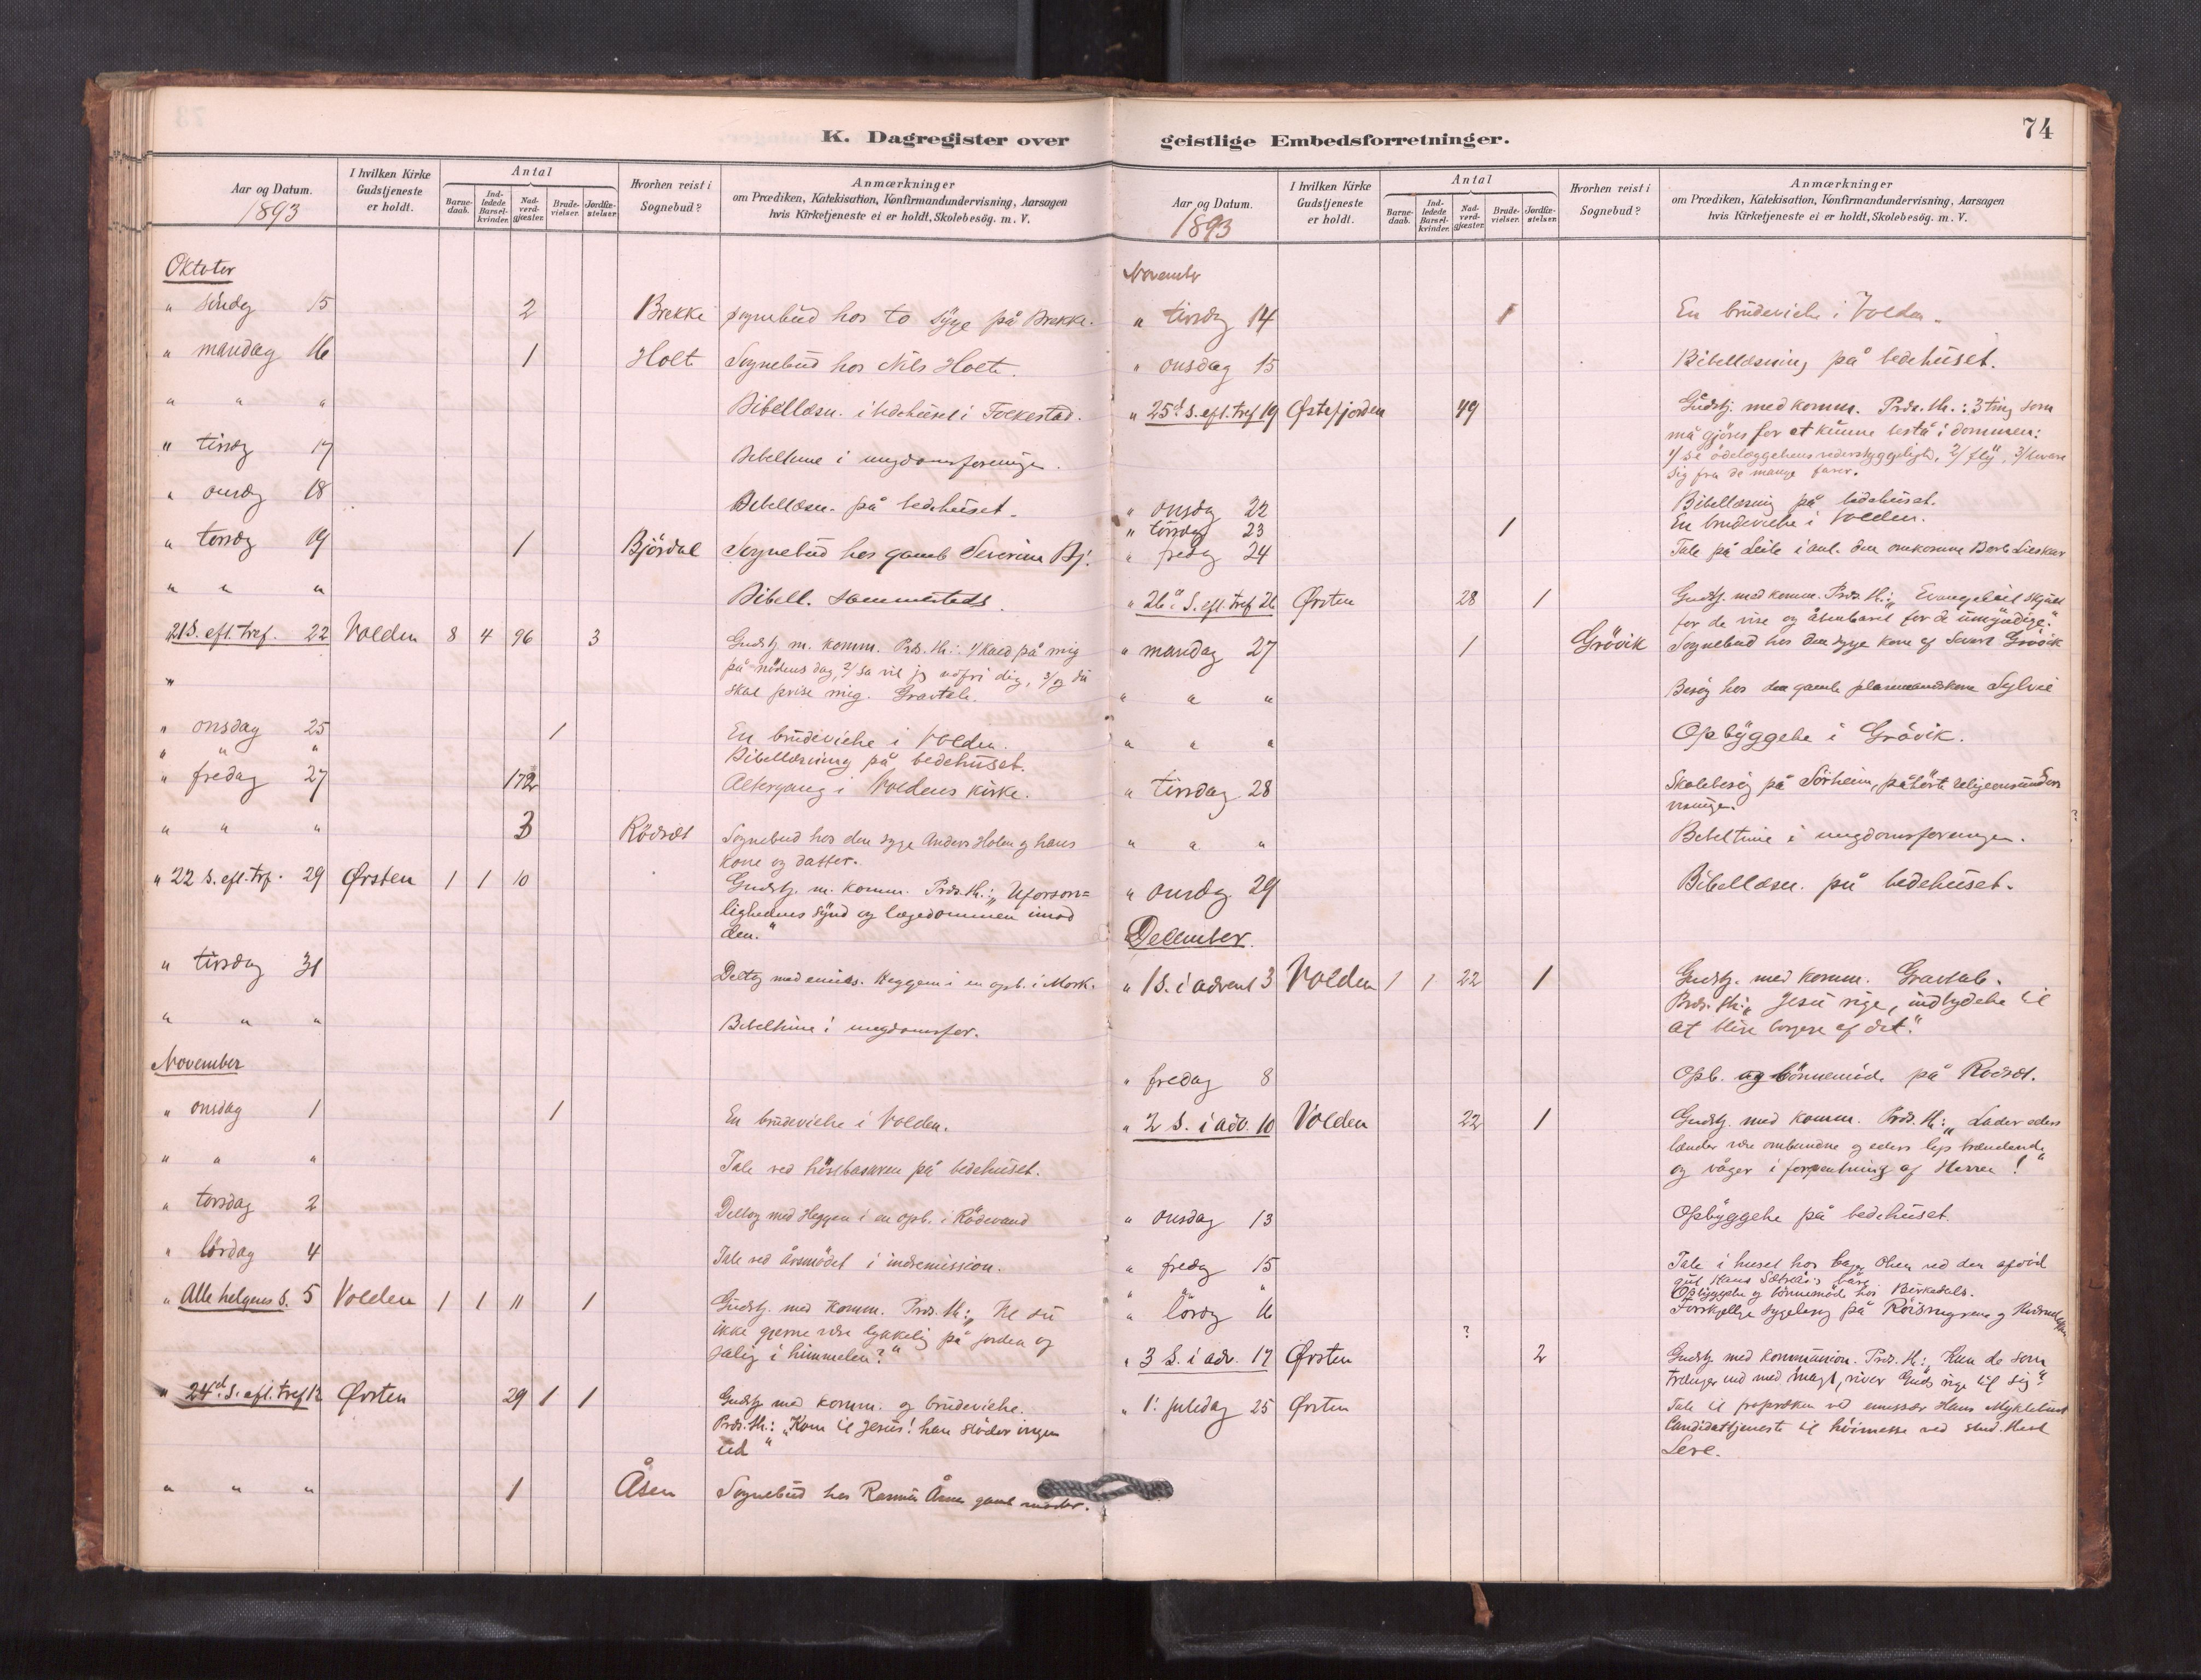 K. Dagregister over
Aar og Datum.
1893
I hvilken Kirke Gudstjeneste er holdt.
Antal
Barnedaab.
Indledede Barselkvinder.
Nadverdgjæster.
Brudevielser.
Jordfæstelser.
Hvorhen reist i Sognebud?
Anmærkninger
om Prædiken, Katekisation, Konfirmandundervisning, Aarsagen
hvis Kirketjeneste ei er holdt, Skolebesög. m. V.
Oktober
" söndag 15 2 Brekke sognebud hos to syge på Brekke.
" mandag 16 1 Holt Sognebud hos Nils Holt.
" " " Bibellæsn. i bedehuset i Folkestad.
" tirsdg 17 Bibeltime i ungdomsforeningen.
" onsdg 18 Bibellæsn. på bedehuset.
" torsdg 19 1 Björdal Sognebud hos gamle Severine Bj.
" " " Bibell. sammesteds.
21 S. eft. tref. 22 Volden 8 4 96 3 Gudstj. m. komm. Præd. th.: 1/ Kald på mig
på nödens dag, 2/ så vil jeg udfri dig, 3/ og du
skal prise mig. Gravtale.
" onsdag 25 1 En brudevielse i Volden.
" " " Bibellæsning på bedehuset.
" fredag 27 172 Altergang i Voldens kirke.
" " " 3 Rödsæt Sognebud hos den syge Anders Holen og hans
kone og datter.
" 22 S. eft. trf. 29 Ørsten 1 1 10 Gudstj. m. komm. Præd. th.: "Uforson=
lighedens synd og lægedommen imod
den."
" tirsdag 31 Deltog med emiss. Heggem i en opb. i Mork.
" " " Bibeltime i ungdomsfor.
November
" onsdag 1 1 En brudevielse i Volden.
" " " Tale ved höstbasaren på bedehuset.
" torsdag 2 Deltog med Heggem i en opb. i Rödevand
" lördag 4 Tale ved årsmödet i indremission.
" Alle helgens S. 5 Volden 1 1 11 1 Gudstj. med komm. Præd. th.: "Vil du
ikke gjerne være lykkelig på jorden og
salig i himmelen?"
" 24d. S. eft. tref. 12 Ørsten 29 1 1 Gudstj. med komm. og brudevielse.
Præd. th.: "Kom til Jesus! han stöder ingen
ud"
" " " 1 Åsen Sognebud hos Rasmus Åsens gamle moder.
geistlige Embedsforretninger.
74
Aar og Datum.
1893
I hvilken Kirke Gudstjeneste er holdt.
Antal
Barnedaab.
Indledede Barselkvinder.
Nadverdgjæster.
Brudevielser.
Jordfæstelser.
Hvorhen reist i Sognebud?
Anmærkninger
om Prædiken, Katekisation, Konfirmandundervisning, Aarsagen
hvis Kirketjeneste ei er holdt, Skolebesög. m. V.
November
" tirsdg 14 1 En brudevielse i Volden.
" onsdag 15 Bibellæsning på bedehuset.
" 25d. S. eft. tref 19 Østefjorden 49 Gudstj. med komm. Præd. th.: 3 ting som
må gjöres for at kunne bestå i dommen:
1/ se ödelæggelsens vederstyggelighed, 2/ fly, 3/ bevare
sig fra de mange farer.
" onsdg 22 Bibellæsning på bedehuset.
" torsdag 23 1 En brudevielse i Volden.
" fredg 24 Tale på i anl. den omkomne
" 26d. S. eft. tref 26 Ørsten 28 1 Gudstj. med komm. Præd. th.: "Evangeliet skjult
for de vise og åbenbaret for de umyndige."
" mandag 27 1 Grövik Sognebud hos den syge kone af Grövik
" " " Besög hos den gamle plasmandskone Sylvie
" " " Opbyggelse i Grövik.
" tirsdag 28 Skolebesög på Sörheim, påhörte religionsunder
visningen.
" " " Bibeltime i ungdomsforeningen.
" onsdg 29 Bibellæsn. på bedehuset.
December
" 1 S. i advent 3 Volden 1 1 22 1 Gudstj. med komm. Gravtale.
Præd. th.: "Jesu rige, indbydelse til
at blive borgere af det."
" fredag 8 Opb. og bönnemöde på Rödsæt.
" 2 S. i adv. 10 Volden 22 1 Gudstj. med komm. Præd. th.: "Lader eders
lænder være ombundne og eders lys brændende
og våger i forventning af Herren!"
" onsdag 13 Opbyggelse på bedehuset.
" fredg 15 Tale i huset hos Olsen ved den afdöd
gut Hans båre.
" " " Opbyggelse og bönnemöde hos Birkedals.
" lördg 16 ? Forskjellige sygebesög på
" 3 S. i adv. 17 Ørsten 2 Gudstj med kommunion. Præd. th.: "Kun de som
trænger ind med magt, river Guds rige til sig"
" 1. juledag 25 Ørsten Tale til froprædken ved emissær Hans Myklebust
Candidattjeneste til höimesse ved stud.